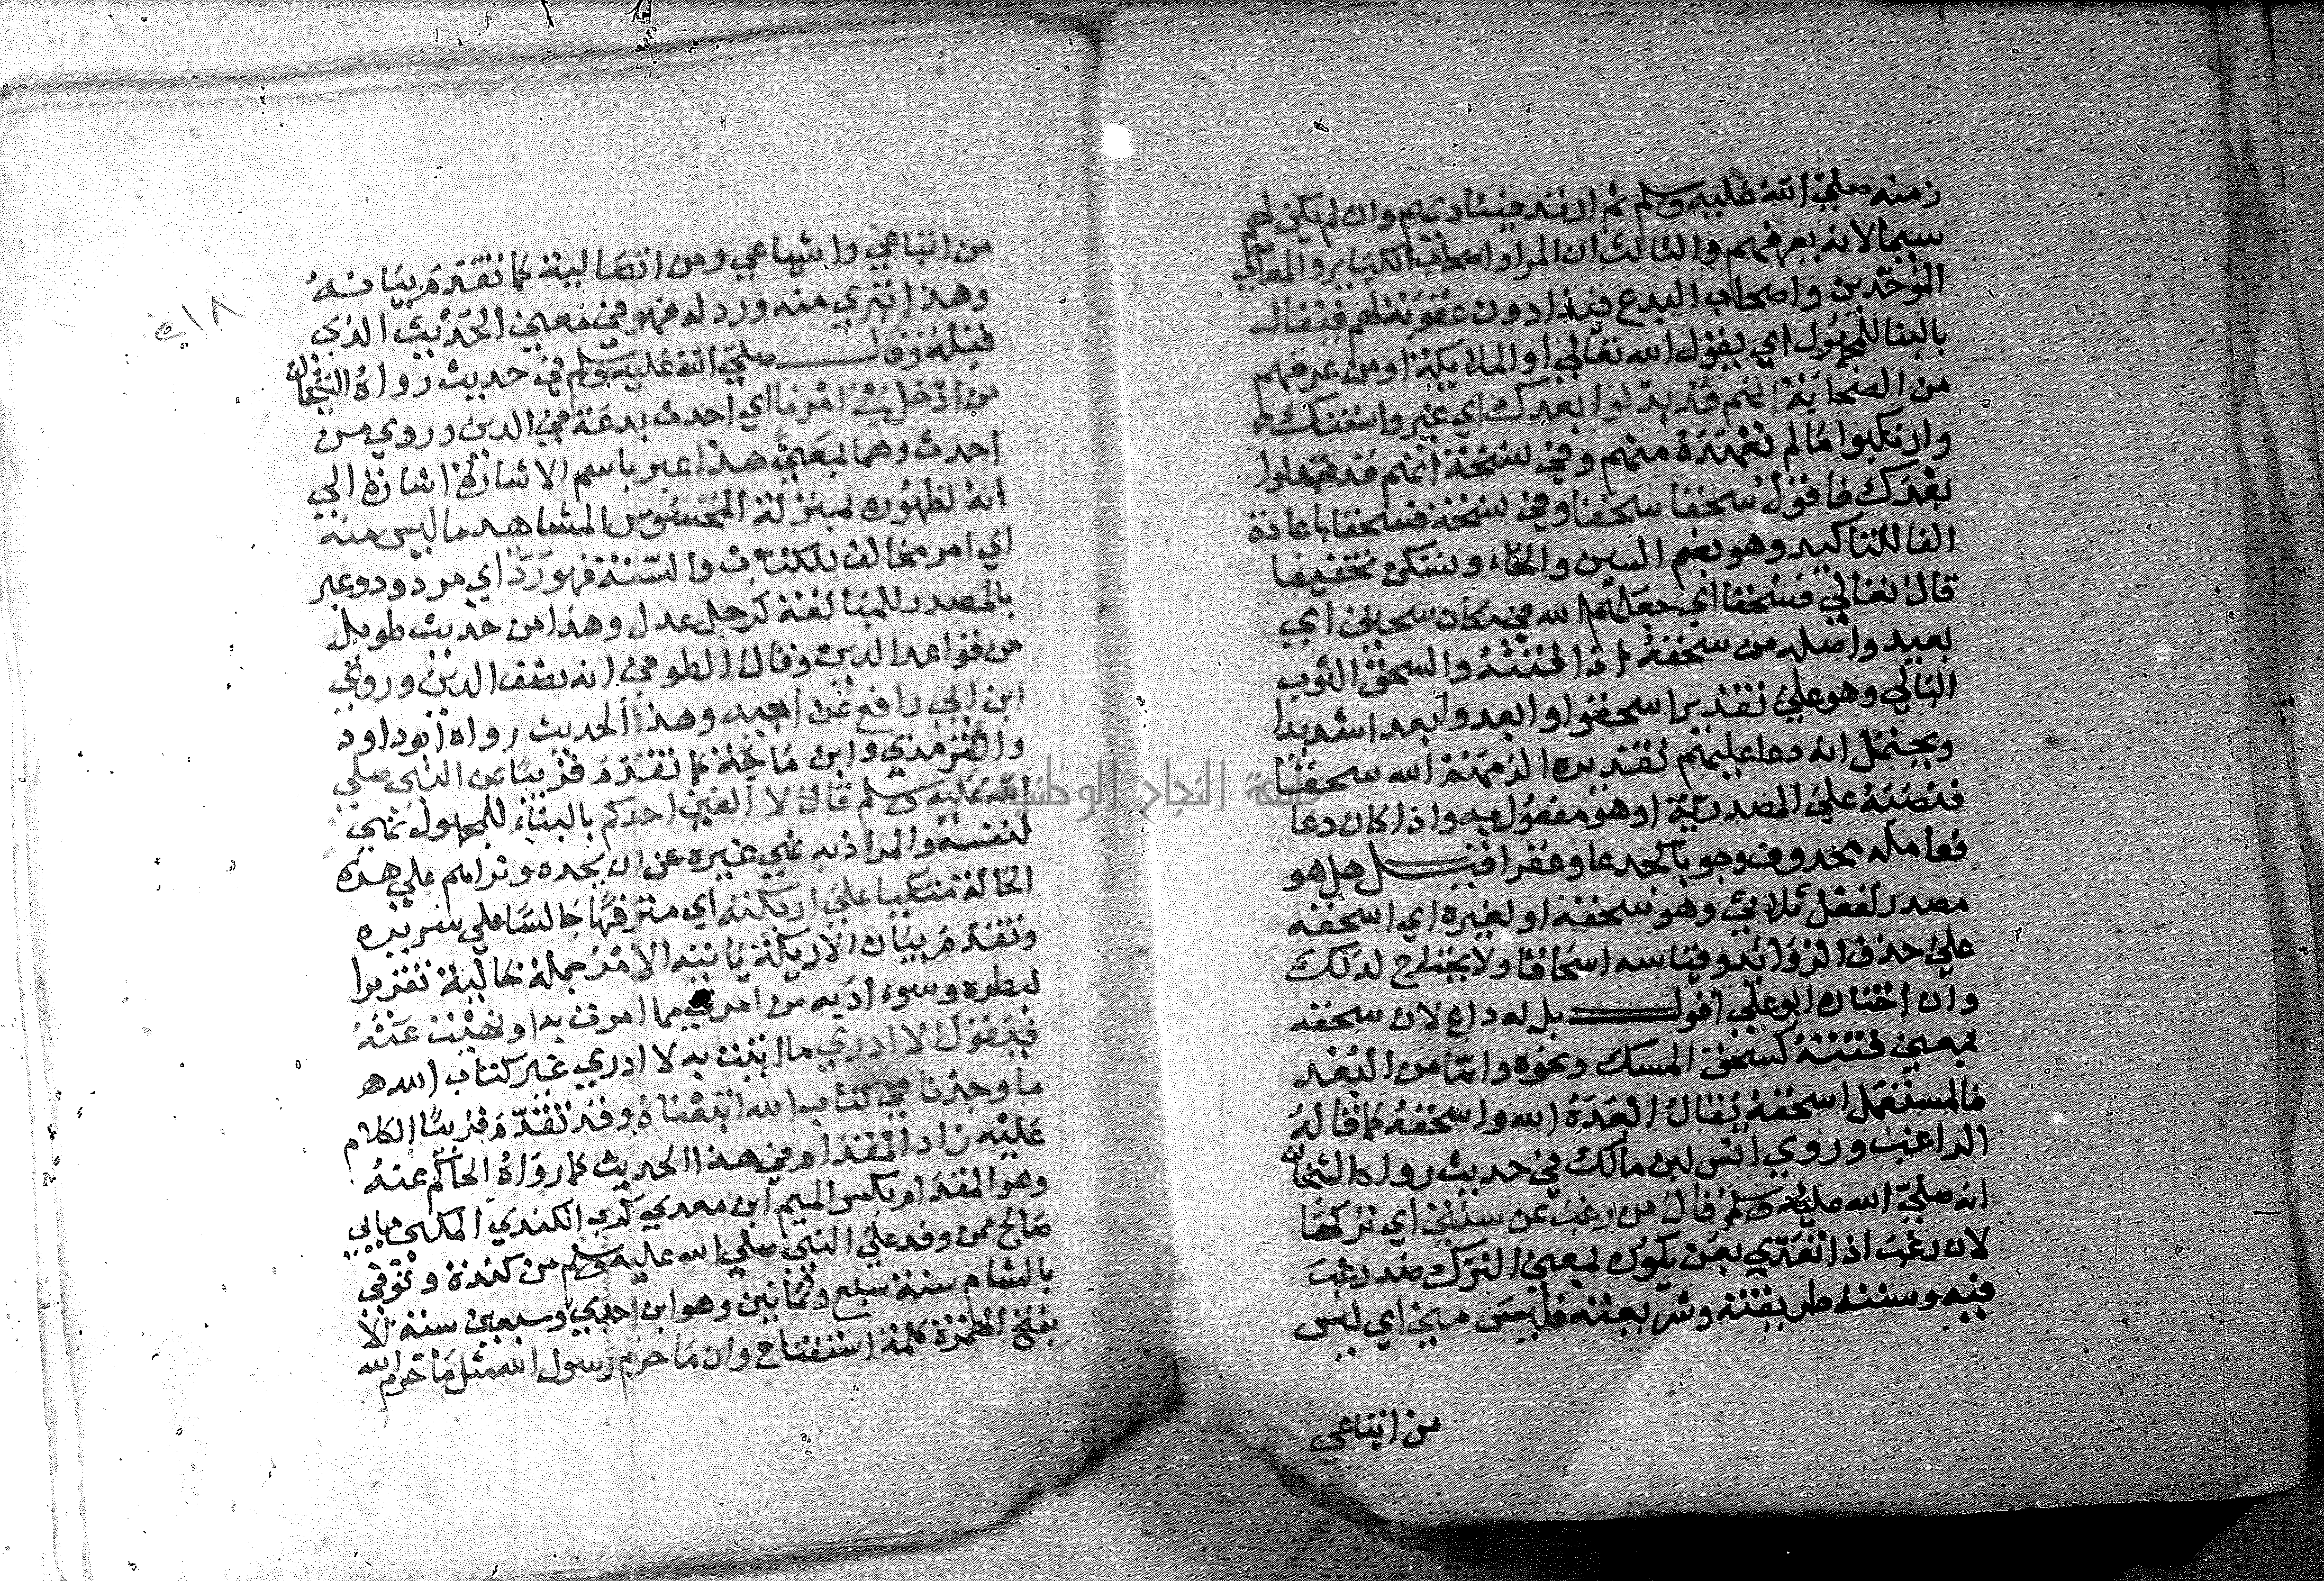 زمنه صلي الله عليه وسلم ثم ارتد فيناديهم وان لم يكن لهم
سيما لانه يعرفهم والثالث ان المراد اصحاب الكباير والمعاصي
الموحدين واصحاب البدع فيذادون عقوبة لهم فيقال
بالبنا للمجهول اي يقول الله تعالي او الملايكة او من عرفهم
من الصحابة انهم قد بدلوا بعدك اي غيروا سنتك
وارتكبوا مالم تعهده منهم وفي نسخة انهم قد بدلوا
بعدك فاقول سحقا سحقا وفي نسخة فسحقا باعادة
الفا للتاكيد وهو بضم السين والحاء وتسكن تخفيفا
قال تعالي فسحقا اي جعلهم الله في مكان سحيق اي
بعيد واصله من سحقه اذا فتته والسحق الثوب
البالي وهو علي تقدير اسحقوا وابعدوا بعدا شديدا
ويحتمل انه دعا عليهم تقديره الزمهم الله سحقا
فنصبه علي المصدرية او هو مفعول به واذا كان دعا
فعامله محذوف وجوبا كجدعا وعقرا فقيل هل هو
مصدر لفعل ثلاثي وهو سحقه او لغيره اي اسحقه
علي حذف الزوائد وقياسه اسحاقا ولا يحتاج لذلك
وان اختاره ابو علي اقول بل له داع لان سحقه
بمعني فتته كسحق المسك ونحوه واما من البعد
فالمستعمل اسحقه يقال ابعده الله واسحقه كما قاله
الراغب وروي انس ابن مالك في حديث رواه الشيخان
انه صلي الله عليه وسلم قال من رغب عن سنتي اي تركها
لان رغب اذا تعدي بعن يكون بمعني الترك ضد رغب
فيه وسنته طريقته وشريعته فليس مني اي ليس
من اتباعي
من اتباعي واشياعي ومن اتصالية كما تقدم بيانه
وهذا تبري منه ورد له فهو في معني الحديث الذي
قبله وقال صلي الله عليه وسلم في حديث رواه الشيخان
من ادخل في امرنا اي احدث بدعة في الدين وروي من
احدث وهما بمعني هذا عبر باسم الاشارة اشارة الي
انه لظهوره بمنزلة المحسوس المشاهد ما ليس منه
اي امر مخالف للكتاب والسنة فهو رد اي مردود وعبر
بالمصدر للمبالغة كرجل عدل وهذا من حديث طويل
من قواعد الدين وقال الطوفي انه نصف الدين وروي
ابن ابي رافع عن ابيه وهذا الحديث رواه ابو داود
والترمذي وابن ماجة كما تقدم قريبا عن النبي صلي
الله عليه وسلم قال لا الفين احدكم بالبناء للمجهول نهي
لنفسه والمراد به نهي غيره عن ان يجده ونراهم علي هذه
الحالة متكيا علي اريكته اي مترفها جالسا علي سريره
وتقدم بيان الاريكة ياتيه الامر جملة حالية تقريرا
لبطره وسوء ادبه من امري مما امرت به او نهيت عنه
فيقول لا ادري ما اتيت به لا ادري غير كتاب الله
ما وجدنا في كتاب الله اتبعناه وقد تقدم قريبا الكلام
عليه زاد المقدام في هذا الحديث كما رواه الحاكم عنه
وهو المقدام بكسر الميم ابن معدي كرب الكندي
صالح ممن وفد علي النبي صلي الله عليه وسلم من كندة وتوفي
بالشام سنة سبع وثمانين وهو ابن احدي وسبعين سنة الا
بفتح الهمزة كلمة استفتاح وان ما حرم رسول الله مثل ما حرم الله
جامعة النجاح الوطنية